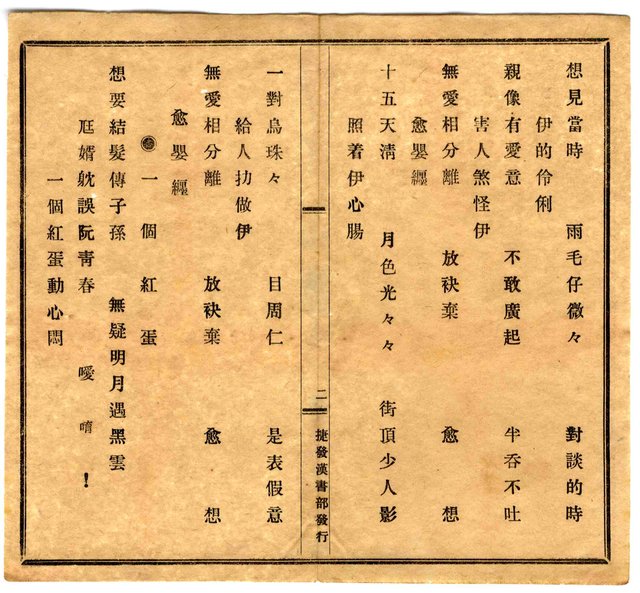 想見當時　雨毛仔微々　對談的時
伊的伶俐
親像有愛意　不敢廣起　半吞不吐
害人煞怪伊
無愛相分離　放袂棄　愈想
愈嬰纏
十五天淸　月色光々々　街頂少人影
照着伊心腸
二
捷發漢書部發行
一對烏珠々　目周仁　是表假意
給人扐做伊
無愛相分離　放袂棄　愈想
愈嬰纏
一個紅蛋
想要結髮傳子孫　無疑明月遇黑雲
尫婿躭誤阮靑春　噯唷！
一個紅蛋動心悶